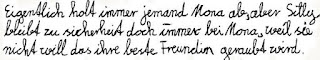 Eigentlich holt immer jemand Mona ab, aber Silly,
bleibt zu sicherheit doch immer bei Mona, weil sie
nicht will das ihre beste Freundin geraubt wird.